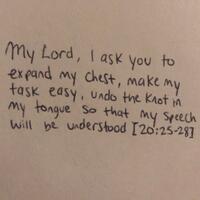 My Lord, I ask you to
expand my chest, make my
task easy, undo the knot in
my tongue so that my speech
will be understood [20:25-28]